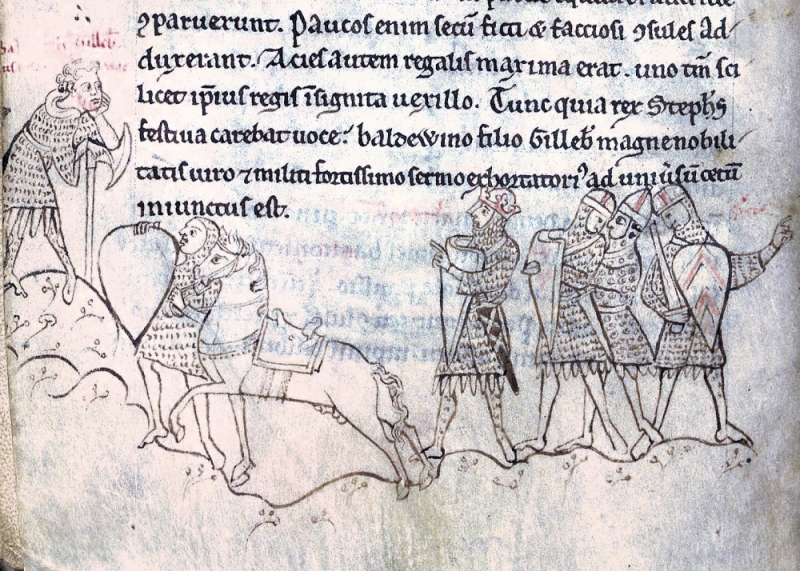 ꝯparuerunt. Paucos enim secū ficti & factiosi ꝯsules ad-
duxerant. Acies autem regalis maxima erat. uno tm̄ sci
licet ip̄ius regis īsignita uexillo. Tunc quia rex Steph̄s
festiua carebat uoce: baldewino filio Gilleb̄ magne nobili-
tatis uiro ⁊ militi fortissimo sermo exhortatori᷒ ad uniūsū cetū
iniunctus est.
Gilleb̄